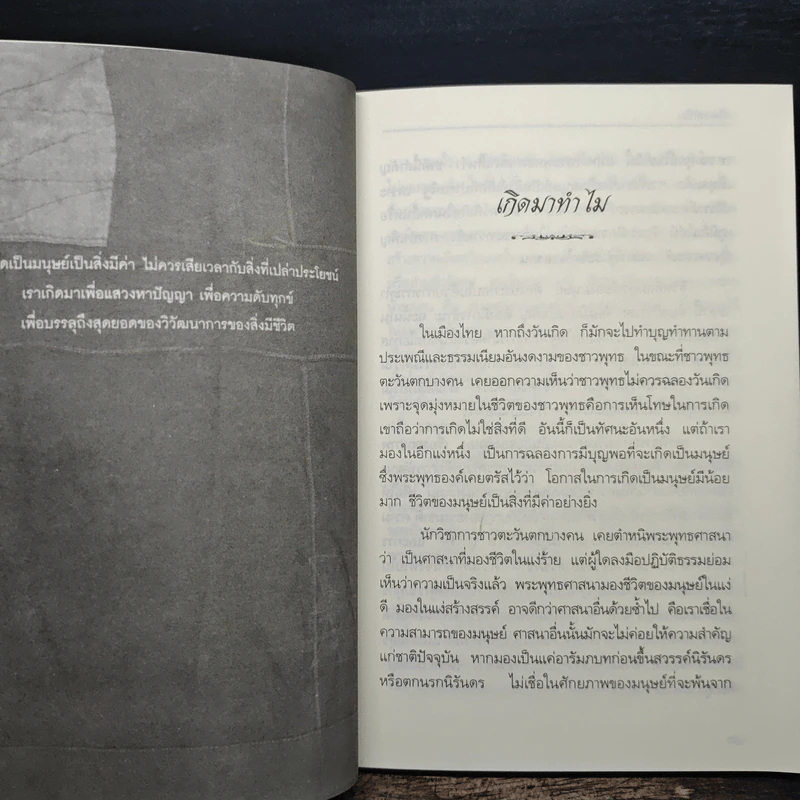 ดเป็นมนุษย์เป็นสิ่งมีค่า ไม่ควรเสียเวลากับสิ่งที่เปล่าประโยชน์
เราเกิดมาเพื่อแสวงหาปัญญา เพื่อความดับทุกข์
เพื่อบรรลุถึงสุดยอดของวิวัฒนาการของสิ่งมีชีวิต
เกิดมาทำไม
ในเมืองไทย หากถึงวันเกิด ก็มักจะไปทำบุญทำทานตาม
ประเพณีและธรรมเนียมอันงดงามของชาวพุทธ ในขณะที่ชาวพุทธ
ตะวันตกบางคน เคยออกความเห็นว่าชาวพุทธไม่ควรฉลองวันเกิด
เพราะจุดมุ่งหมายในชีวิตของชาวพุทธคือการเห็นโทษในการเกิด
เขาถือว่าการเกิดไม่ใช่สิ่งที่ดี อันนี้ก็เป็นทัศนะอันหนึ่ง แต่ถ้าเรา
มองในอีกแง่หนึ่ง เป็นการฉลองการมีบุญพอที่จะเกิดเป็นมนุษย์
ซึ่งพระพุทธองค์เคยตรัสไว้ว่า โอกาสในการเกิดเป็นมนุษย์มีน้อย
มาก ชีวิตของมนุษย์เป็นสิ่งที่มีค่าอย่างยิ่ง
นักวิชาการชาวตะวันตกบางคน เคยตำหนิพระพุทธศาสนา
ว่า เป็นศาสนาที่มองชีวิตในแง่ร้าย แต่ผู้ใดลงมือปฏิบัติธรรมย่อม
เห็นว่าความเป็นจริงแล้ว พระพุทธศาสนามองชีวิตของมนุษย์ในแง่
ดี มองในแง่สร้างสรรค์ อาจดีกว่าศาสนาอื่นด้วยซ้ำไป คือเราเชื่อใน
ความสามารถของมนุษย์ ศาสนาอื่นนั้นมักจะไม่ค่อยให้ความสำคัญ
แก่ชาติปัจจุบัน หากมองเป็นแค่อารัมภบทก่อนขึ้นสวรรค์นิรันดร
หรือตกนรกนิรันดร ไม่เชื่อในศักยภาพของมนุษย์ที่จะพ้นจาก